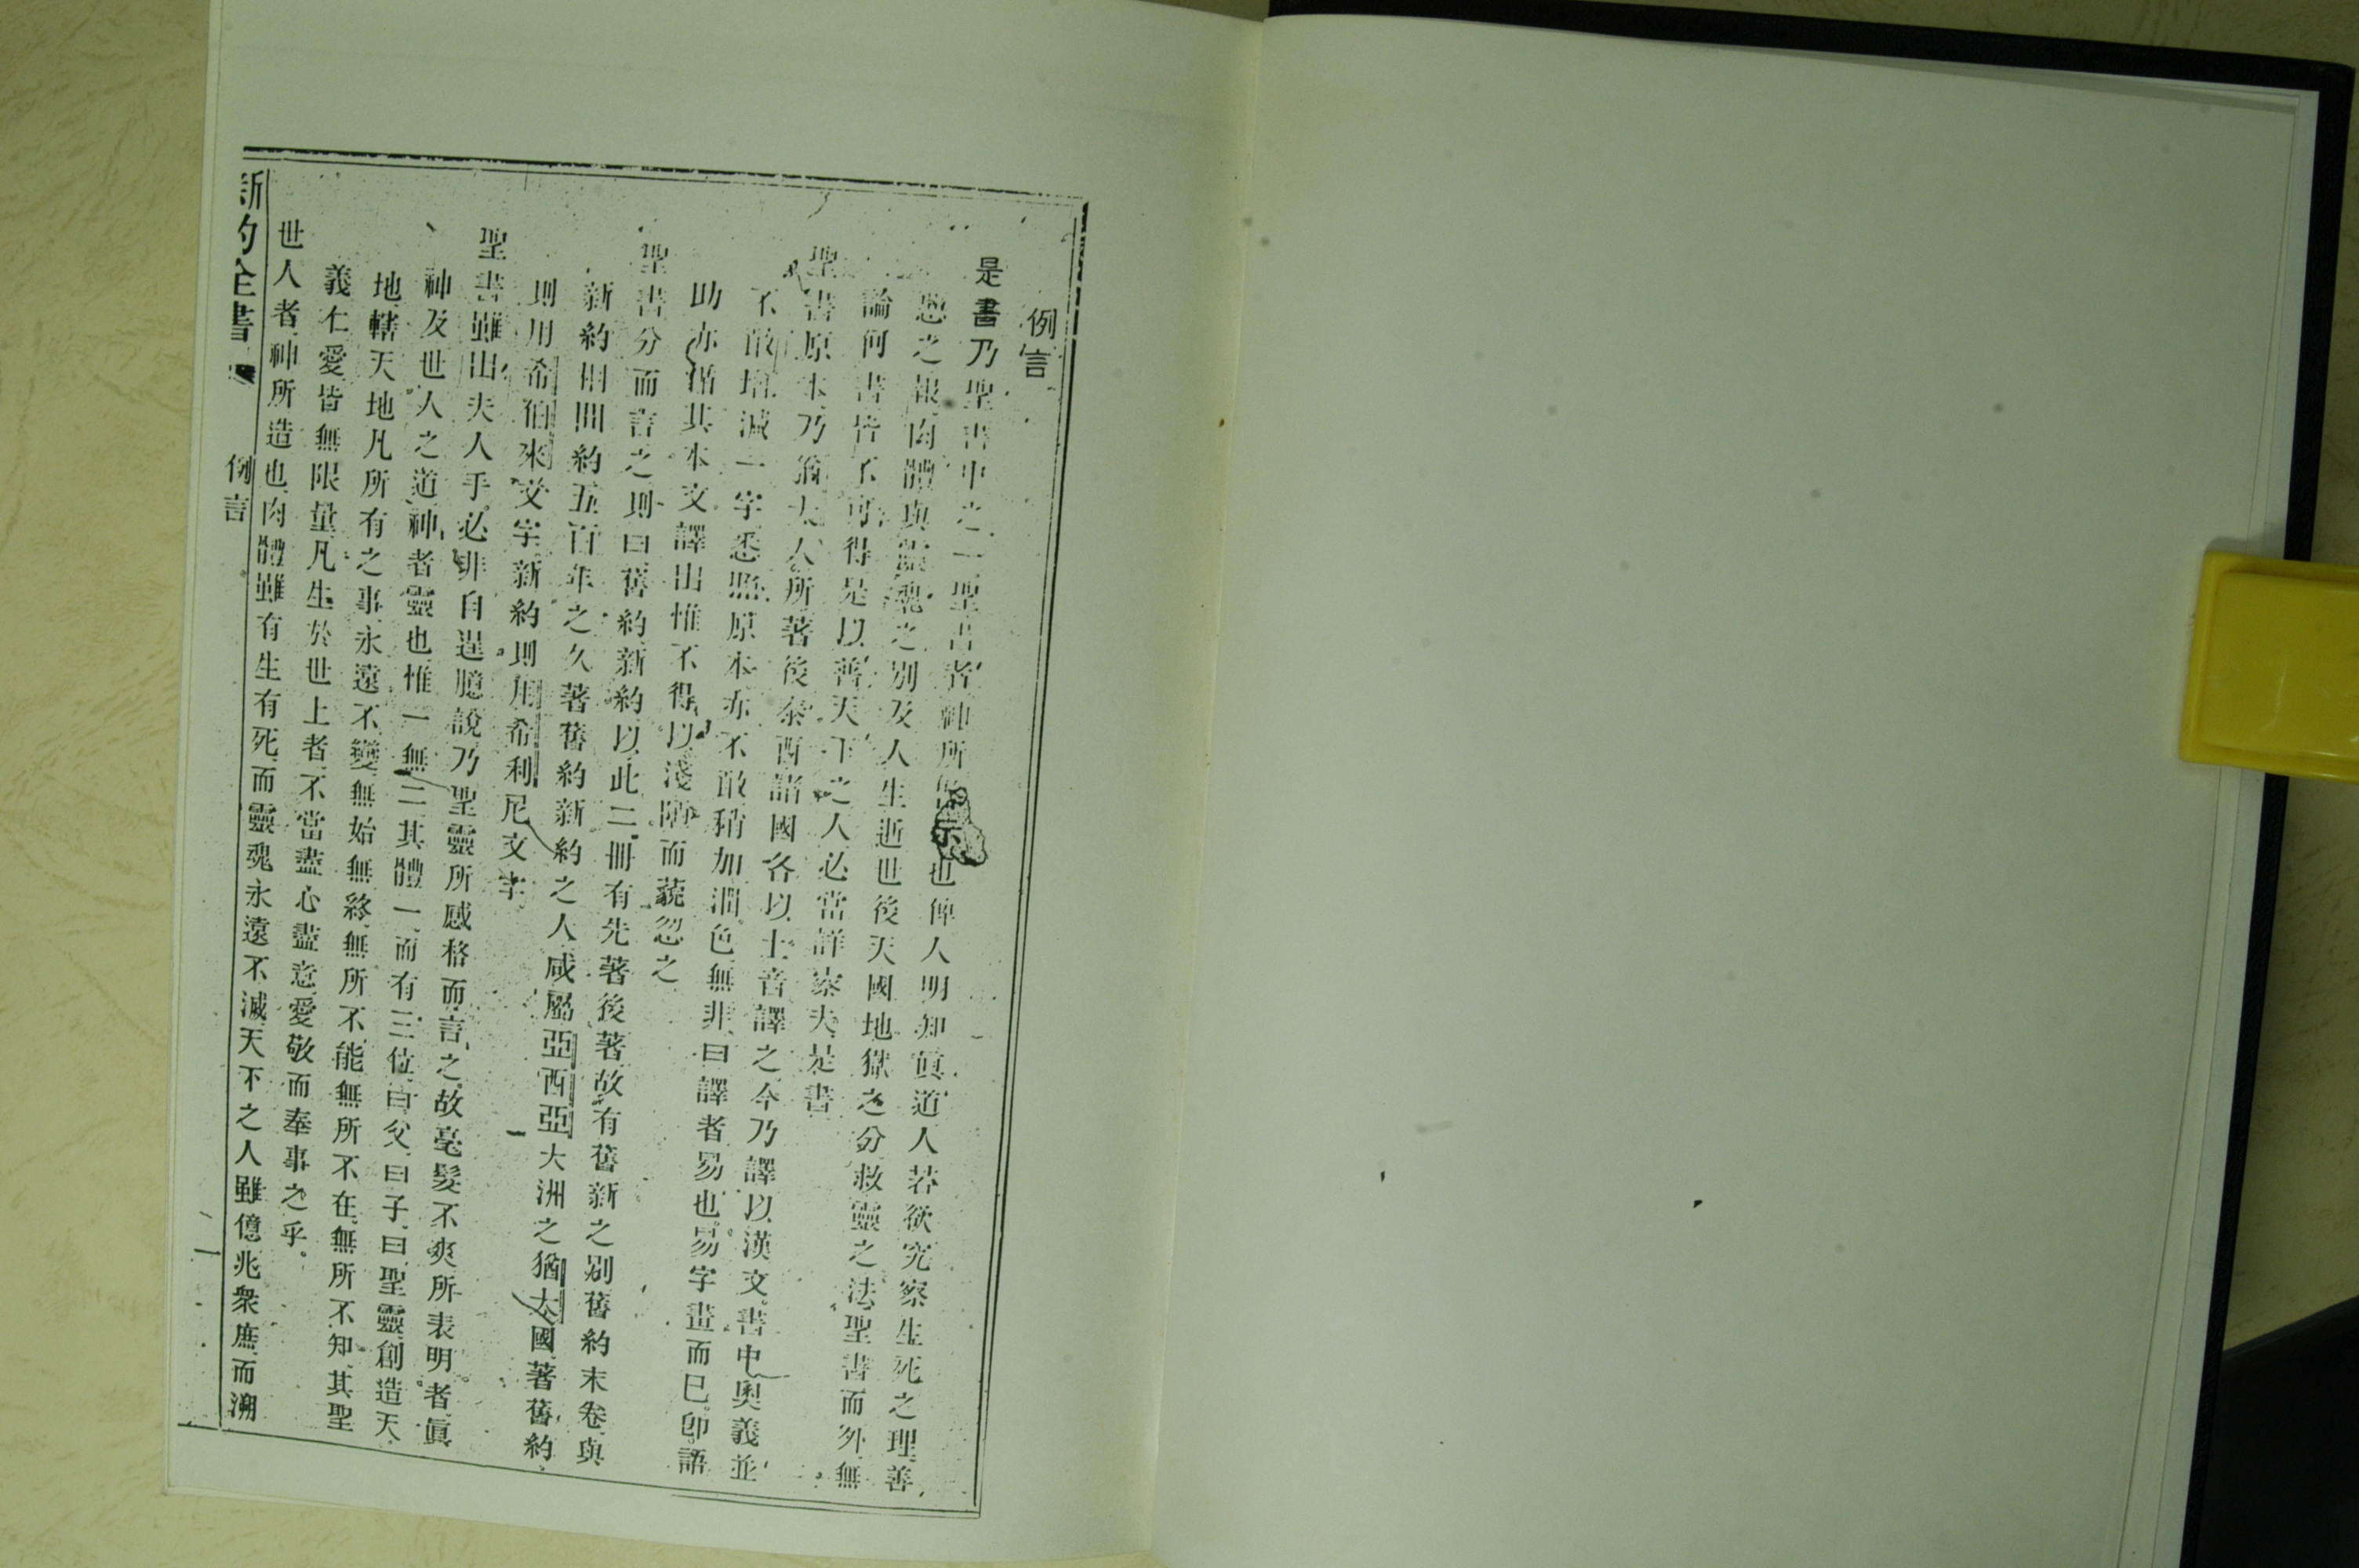 例言
是書乃聖書中之一聖書者神所啓示也俾人明知眞道人若欲究察生死之理善
惡之報肉體與靈魂之別及人生逝世後天國地獄之分救靈之法聖書而外無
論何書皆不可得是以普天下之人必當詳察夫是書
聖書原本乃猶太人所著後泰西諸國各以土音譯之今乃譯以漢文書中奧義並
不敢增減一字悉照原本亦不敢稍加潤色無非曰譯者易也易字畫而已卽語
助亦循其本文譯出惟不得以淺陋而藐忽之
聖書分而言之則曰舊約新約以此二冊有先著後著故有舊新之別舊約末卷與
新約相間約五百年之久著舊約新約之人咸屬亞西亞大洲之猶太國著舊約
則用希伯來文字新約則用希利尼文字
聖書雖出夫人手必非自逞臆說乃聖靈所感格而言之故毫髮不爽所表明者眞
神及世人之道神者靈也惟一無二其體一而有三位曰父曰子曰聖靈創造天
地轄天地凡所有之事永遠不變無始無終無所不能無所不在無所不知其聖
義仁愛皆無限量凡生於世上者不當盡心盡意愛敬而奉事之乎
世人者神所造也肉體雖有生有死而靈魂永遠不滅天下之人雖億兆衆庶而溯
新約全書 例言 一